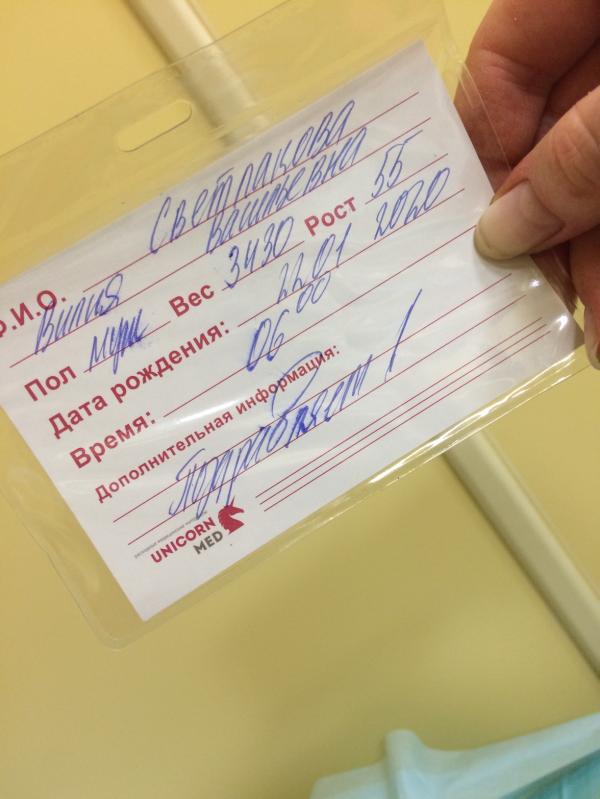 Ф.И.О. Светлакова
Вилия Васильевна
Пол муж Вес 3430 Рост 55
Дата рождения: 22.01 2020
Время: 06 00
Дополнительная информация:
Поздравляем!
UNICORN
MED